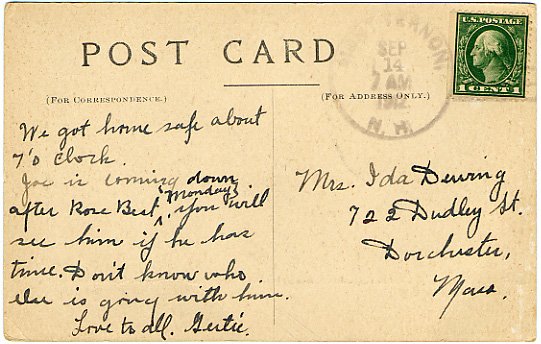 POST CARD
(FOR CORRESPONDENCE.)
(FOR ADDRESS ONLY.)
VERNON,
SEP
14
7 AM
1912
N. H.
U.S. POSTAGE
1 CENT 1
We got home safe about
7'o clock.
Joe is coming down
after Rose Best (Monday) You will
see him if he has
time. Don't know who
else is going with him.
Love to all. Gertie.
Mrs. Ida Dewing
722 Dudley St.
Dorchester,
Mass.